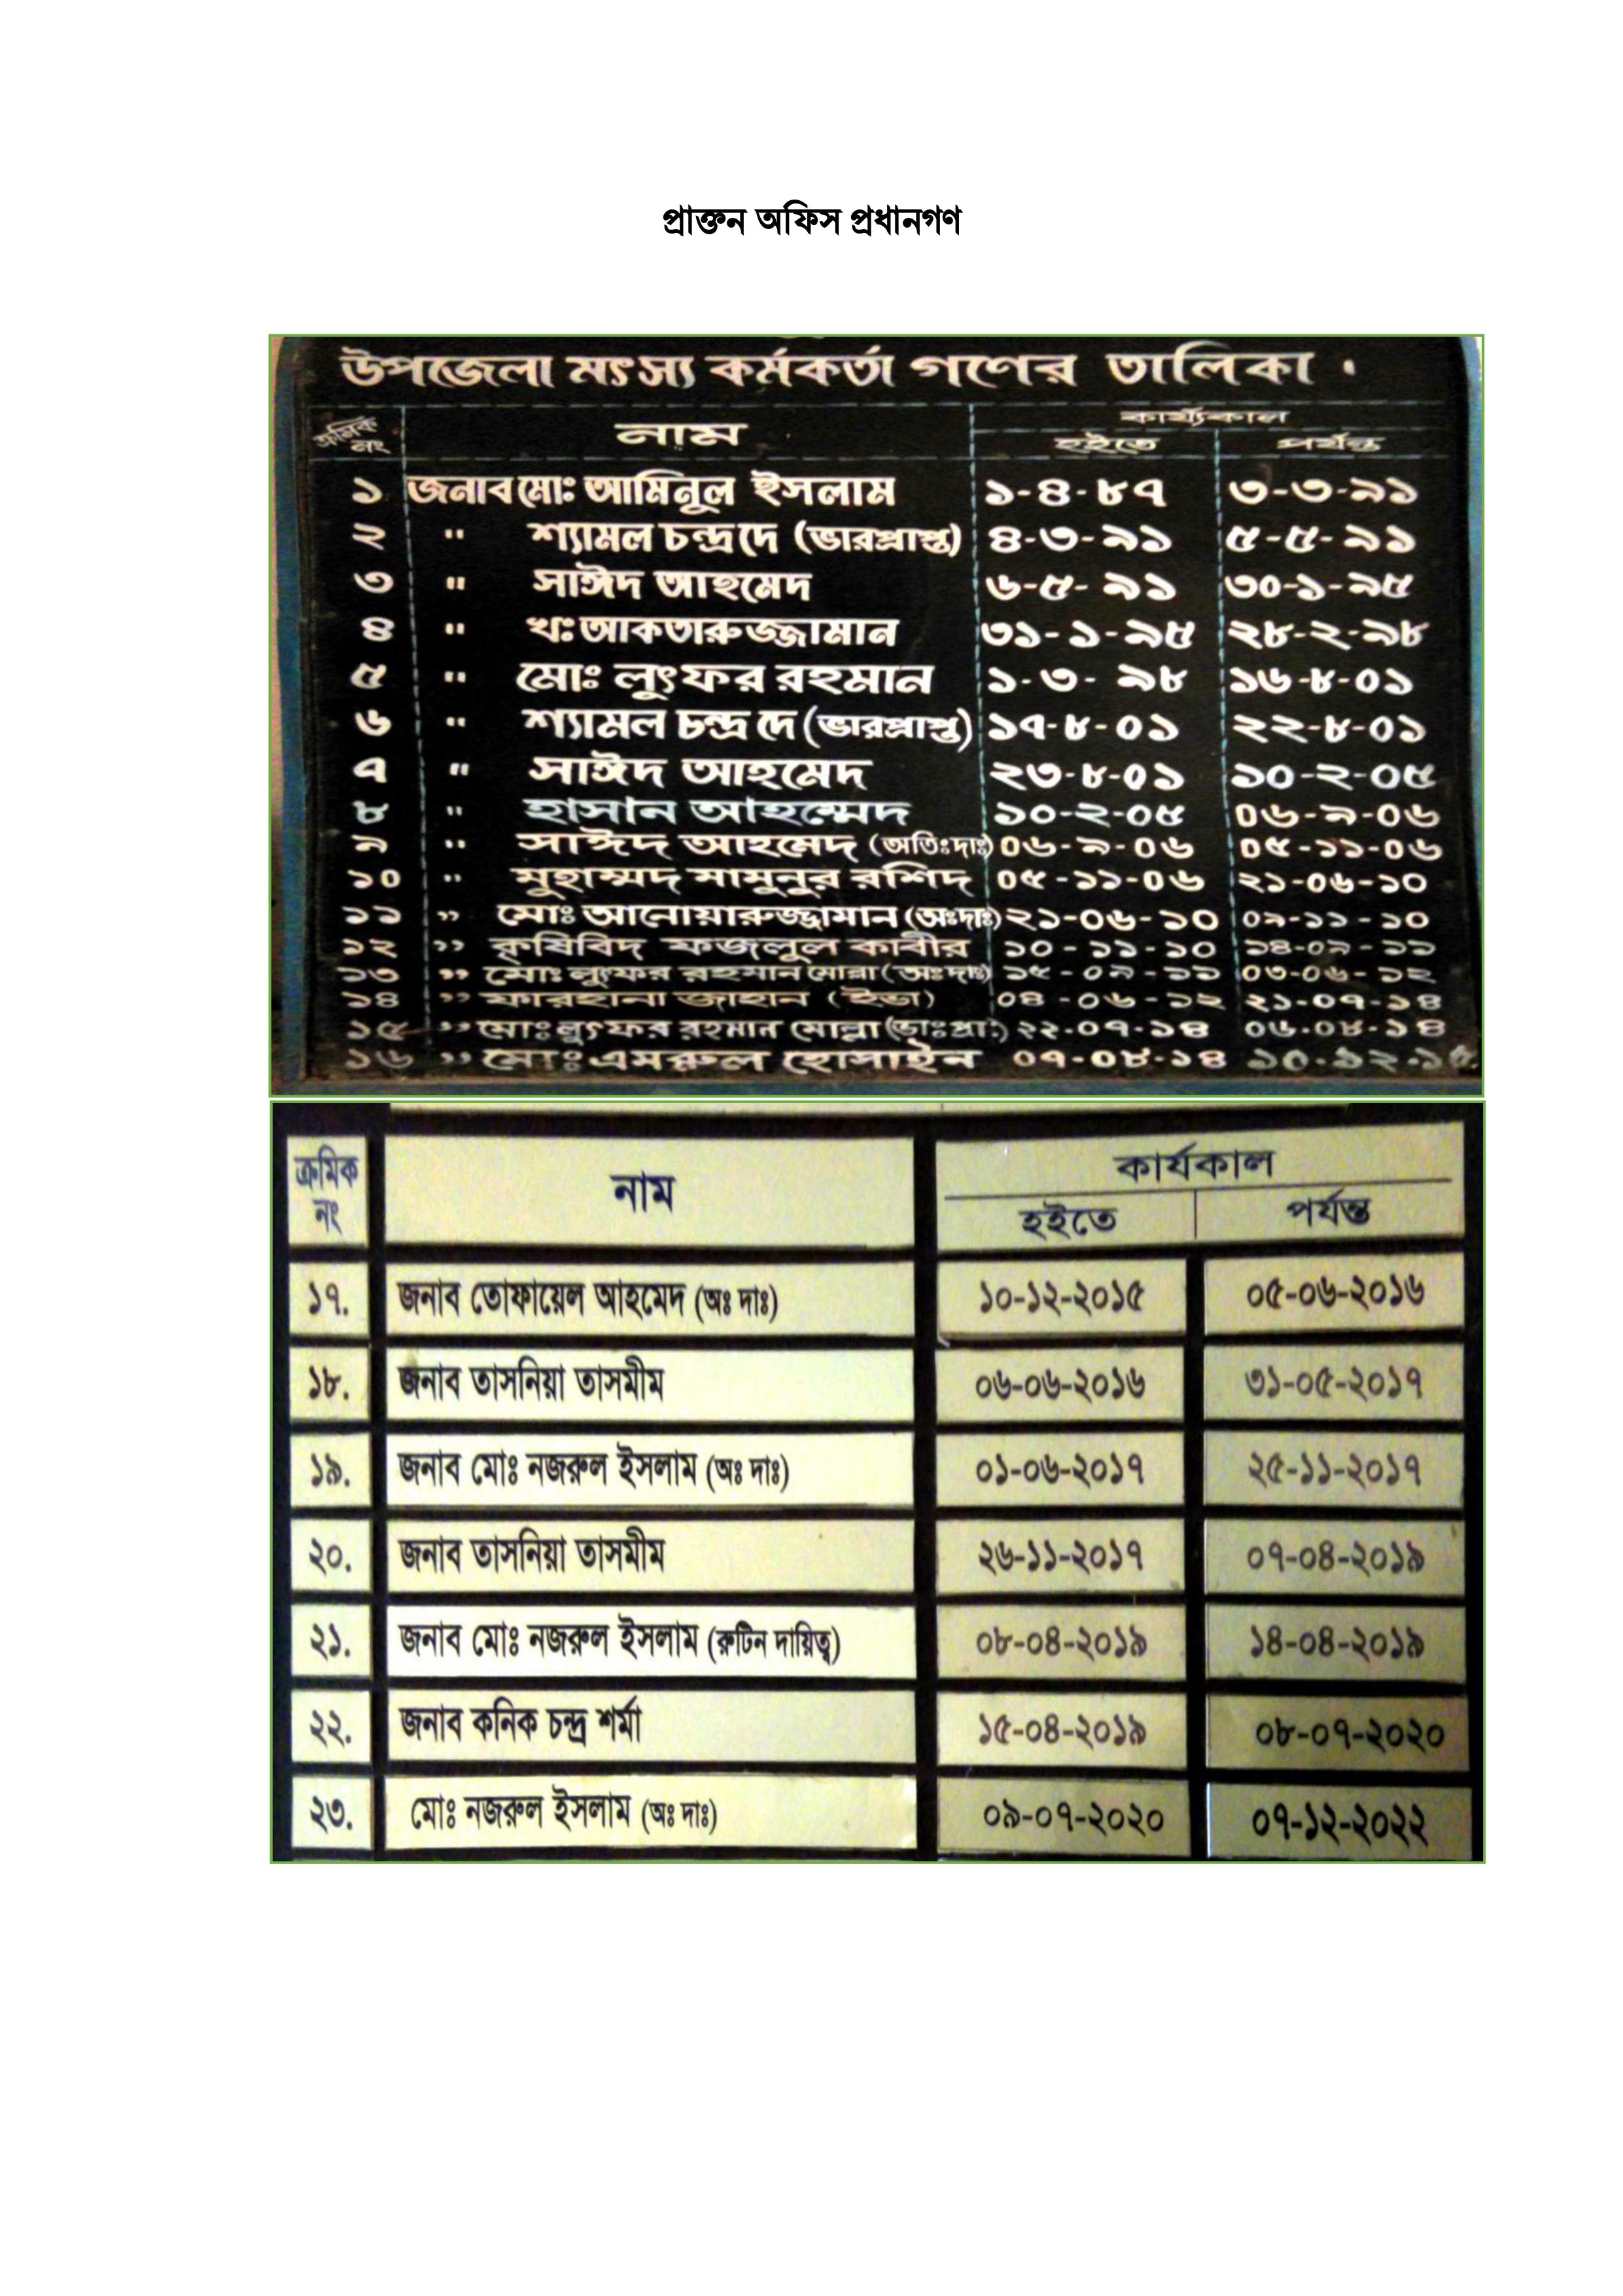 প্রাক্তন অফিস প্রধানগণ
উপজেলা মৎস্য কর্মকর্তা গণের তালিকা ।
ক্রমিক নং নাম কার্য্যকাল
হইতে পর্যন্ত
১ জনাব মোঃ আমিনুল ইসলাম ১-৪-৮৭ ৩-৩-৯১
২ " শ্যামল চন্দ্র দে (ভারপ্রাপ্ত) ৪-৩-৯১ ৫-৫-৯১
৩ " সাঈদ আহমেদ ৬-৫-৯১ ৩০-১-৯৫
৪ " খঃ আকতারুজ্জামান ৩১-১-৯৫ ২৮-২-৯৮
৫ " মোঃ লুৎফর রহমান ১-৩-৯৮ ১৬-৮-০১
৬ " শ্যামল চন্দ্র দে (ভারপ্রাপ্ত) ১৭-৮-০১ ২২-৮-০১
৭ " সাঈদ আহমেদ ২৩-৮-০১ ১০-২-০৫
৮ " হাসান আহম্মেদ ১০-২-০৫ ০৬-৯-০৬
৯ " সাঈদ আহমেদ (অতিঃদাঃ) ০৬-৯-০৬ ০৫-১১-০৬
১০ " মুহাম্মদ মামুনুর রশিদ ০৫-১১-০৬ ২১-০৬-১০
১১ " মোঃ আনোয়ারুজ্জামান (অঃদাঃ) ২১-০৬-১০ ০৯-১১-১০
১২ " কৃষিবিদ ফজলুল কাবীর ১০-১১-১০ ১৪-০৯-১১
১৩ " মোঃ লুৎফর রহমান মোল্লা (অঃদাঃ) ১৫-০৯-১১ ০৩-০৬-১২
১৪ " ফারহানা জাহান (ইভা) ০৪-০৬-১২ ২১-০৭-১৪
১৫ " মোঃ লুৎফর রহমান মোল্লা (ভাঃপ্রাঃ) ২২-০৭-১৪ ০৬-০৮-১৪
১৬ " মোঃ এমরুল হোসাইন ০৭-০৮-১৪ ১০-১২-১৫
ক্রমিক নং নাম কার্যকাল
হইতে পর্যন্ত
১৭. জনাব তোফায়েল আহমেদ (অঃ দাঃ) ১০-১২-২০১৫ ০৫-০৬-২০১৬
১৮. জনাব তাসনিয়া তাসমীম ০৬-০৬-২০১৬ ৩১-০৫-২০১৭
১৯. জনাব মোঃ নজরুল ইসলাম (অঃ দাঃ) ০১-০৬-২০১৭ ২৫-১১-২০১৭
২০. জনাব তাসনিয়া তাসমীম ২৬-১১-২০১৭ ০৭-০৪-২০১৯
২১. জনাব মোঃ নজরুল ইসলাম (রুটিন দায়িত্ব) ০৮-০৪-২০১৯ ১৪-০৪-২০১৯
২২. জনাব কনিক চন্দ্র শর্মা ১৫-০৪-২০১৯ ০৮-০৭-২০২০
২৩. মোঃ নজরুল ইসলাম (অঃ দাঃ) ০৯-০৭-২০২০ ০৭-১২-২০২২